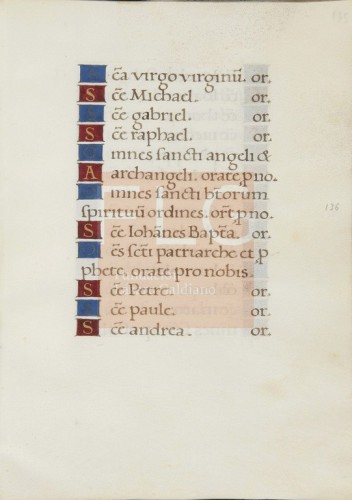 S c̄ca virgo virginū. or.
S c̄e Michael. or.
S c̄e gabriel. or.
S c̄e raphael. or.
O mnes sancti angeli &
A archangeli. orate, p no.
O mnes sancti btorum
spirituū ordines. ort, p no.
S c̄e Iohānes Bapta. or.
ēs scti patriarche et, p
phete, orate pro nobis.
S c̄e Petre. or.
c̄e paule. or.
S c̄e andrea. or.
136